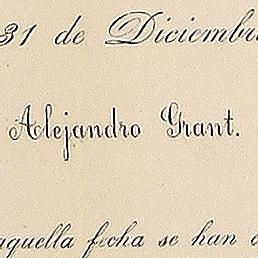 31 de Diciembre
Alejandro Grant.
aquella fecha se han